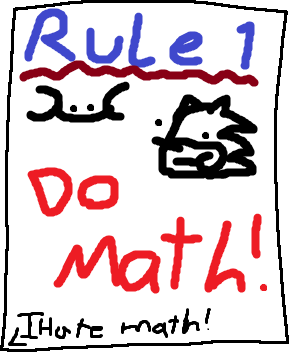 Rule 1
Do
Math!
I Hate math!